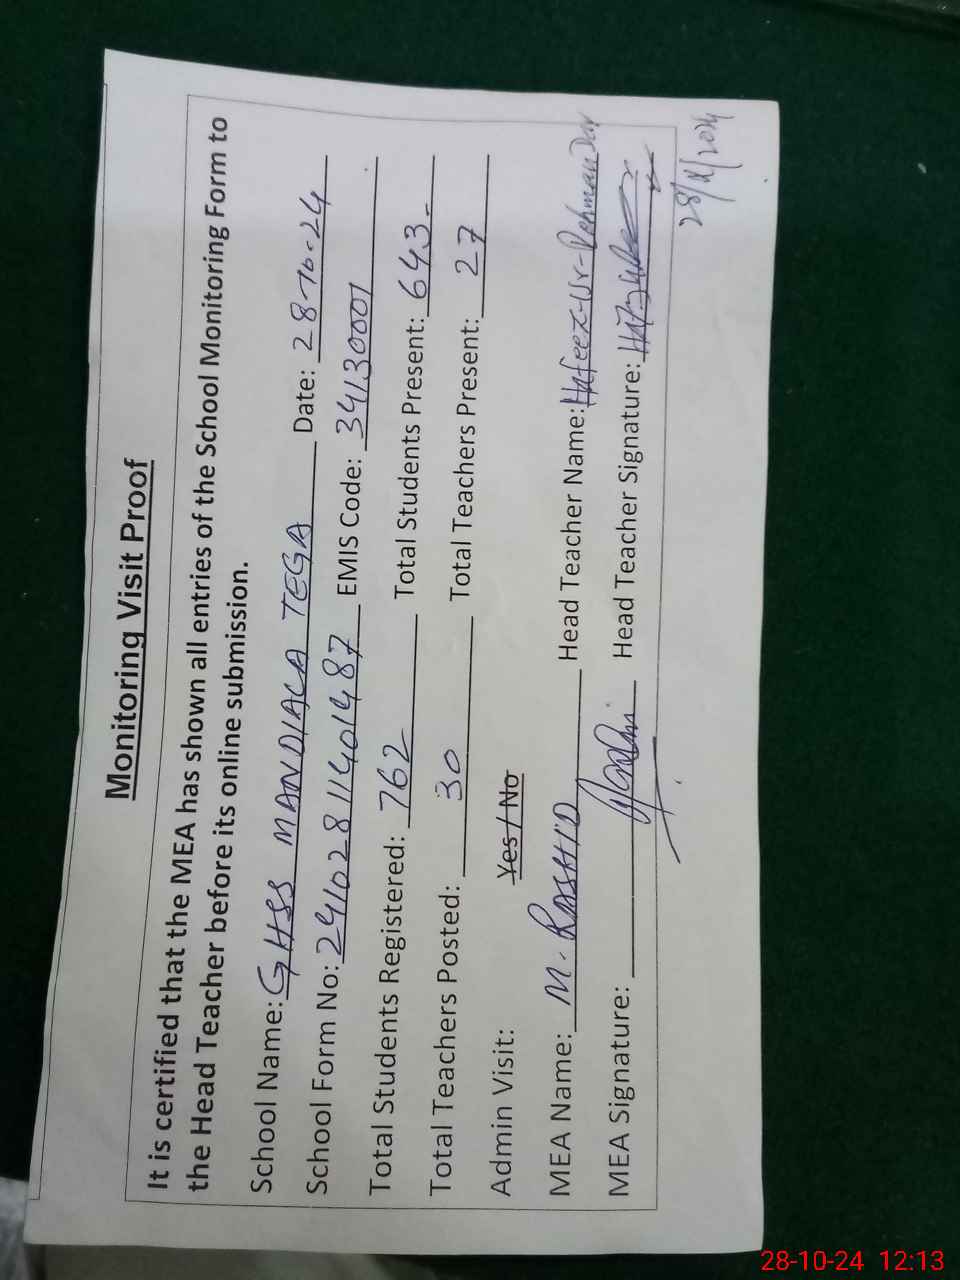 Monitoring Visit Proof
It is certified that the MEA has shown all entries of the School Monitoring Form to
the Head Teacher before its online submission.
School Name: GHSS MANDIALA TEGA Date: 28-10-24
School Form No: 24102811401487 EMIS Code: 34130001
Total Students Registered: 762 Total Students Present: 643
Total Teachers Posted: 30 Total Teachers Present: 27
Admin Visit: Yes / No
MEA Name: M. RASHID Head Teacher Name: Hafeez-ur-Rehman
MEA Signature: Head Teacher Signature:
28-10-24 12:13